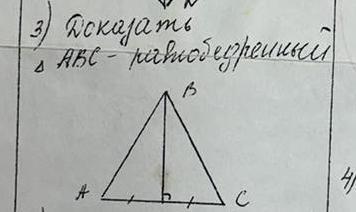 3) Доказать
△ ABC - равнобедренный
B
A
C
4)